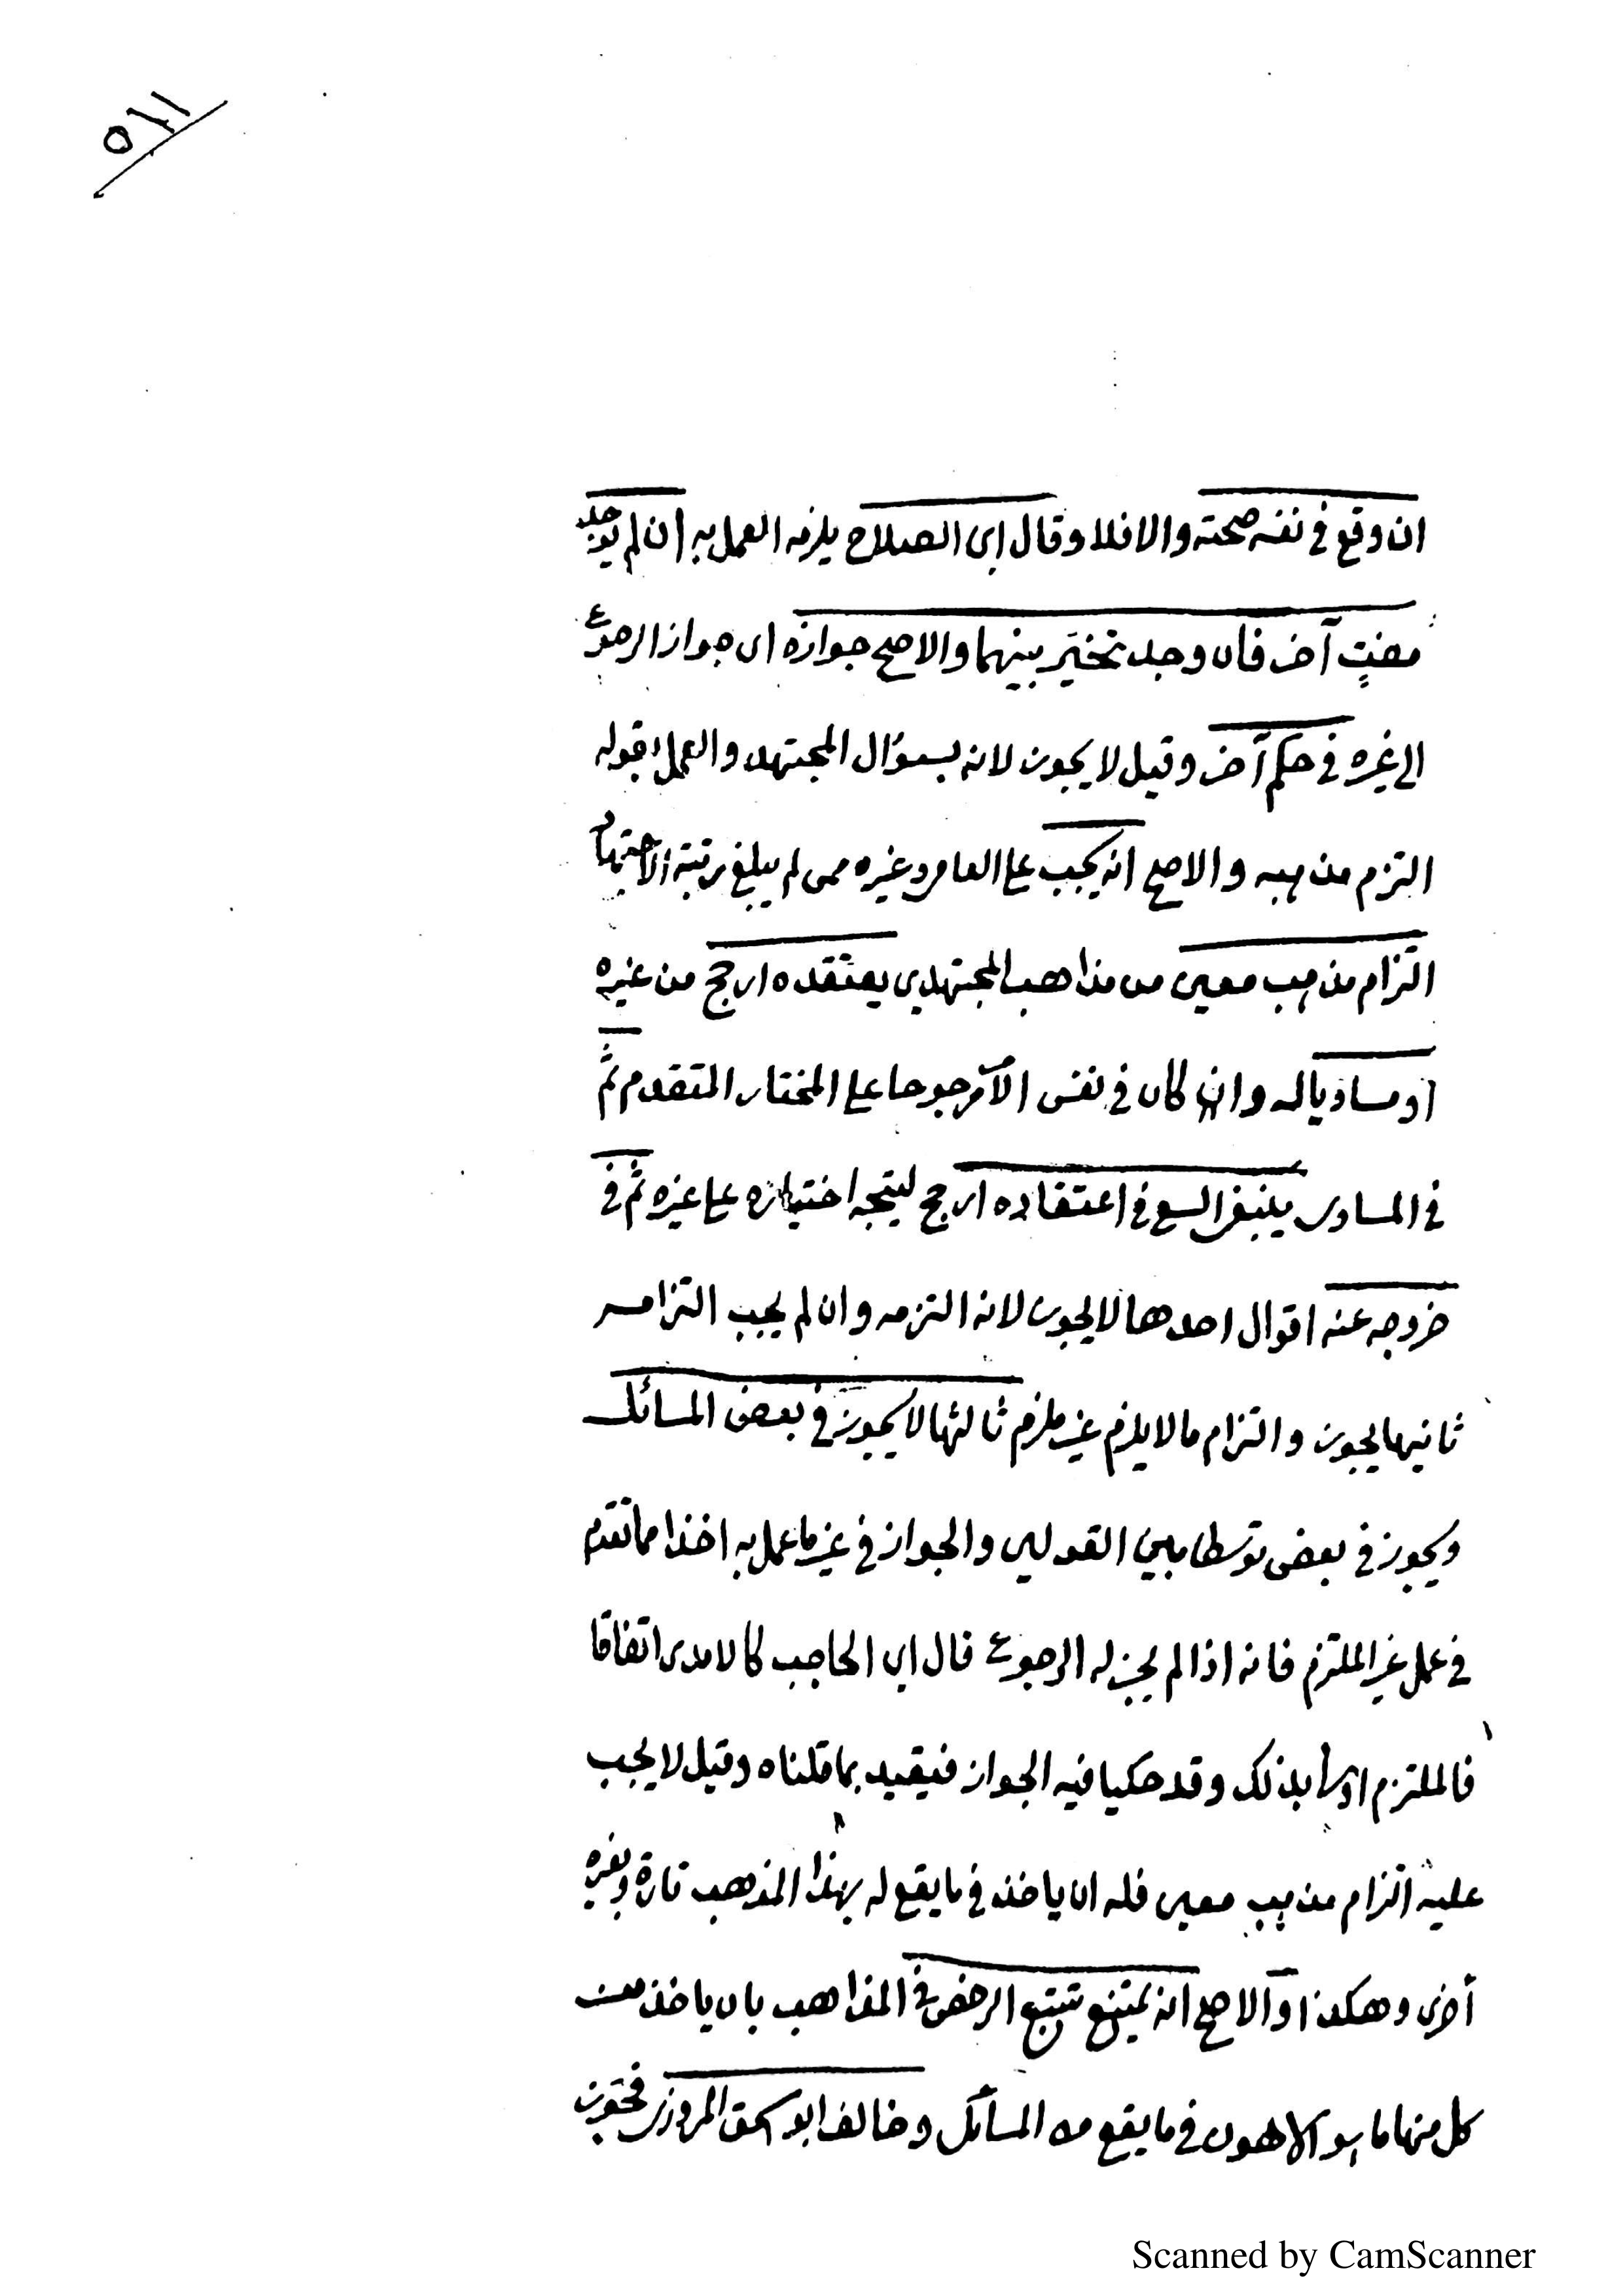 ٥١١
ان وقع في نفسه صحته والا فلا وقال ابن الصلاح يلزمه العمل به ان لم يوجد
مفتٍ آخر فان وجد تخيّر بينهما والاصح جوازه اى جواز الرجوع
الى غيره في حكم آخر وقيل لا يجوز لانه بسؤال المجتهد والعمل بقوله
التزم مذهبه والاصح انه يجب على العامى وغيره ممن لم يبلغ رتبة الاجتهاد
التزام مذهب معين من مذاهب المجتهدين يعتقده ارجح من غيره
او مساويا له وان كان في نفس الامر مرجوحا على المختار المتقدم ثم
في المساوى ينبغى السعى في اعتقاده ارجح ليتجه اختياره على غيره ثم في
خروجه عنه اقوال احدها لا يجوز لانه التزمه وان لم يجب التزامه
ثانيها يجوز والتزام ما لا يلزم غير ملزم ثالثها لا يجوز في بعض المسائل
ويجوز في بعض توسطا بين القولين والجواز في غير ما عمل به اخذا مما تقدم
في عمل غير الملتزم فانه اذا لم يجز له الرجوع قال ابن الحاجب كالامدى اتفاقا
فالملتزم اولى بذلك وقد حكيا فيه الجواز فيقيد بما قلناه وقيل لا يجب
عليه التزام مذهب معين فله ان ياخذ في ما يقع له بهذا المذهب تارة وبغيره
أخرى وهكذا والاصح انه يمتنع تتبع الرخص في المذاهب بان ياخذ من
كل منها ما هو الاهون في ما يقع من المسائل وخالف ابو اسحق المروزى فجوز
Scanned by CamScanner